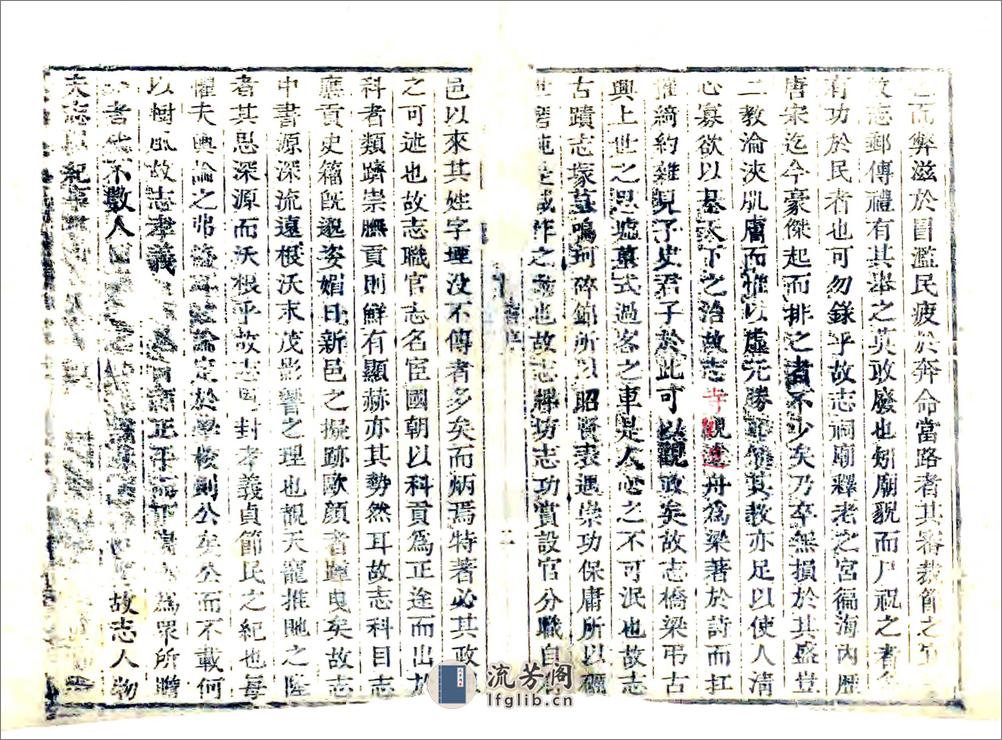 而弊滋於冒濫民疲於奔命當路者其審裁節之
故志郵傳禮有其舉之莫敢廢也矧廟貌而尸祝之者
有功於民者也可勿錄乎故志祠廟釋老之宮徧海內歷
唐宋迄今豪傑起而排之者不少矣乃卒無損於其盛豈
二教淪浹肌膚而惟以虛元勝耶要其教亦足以使人清
心寡欲以基天下之治故志寺觀造舟爲梁著於詩而扛
催綺約雜見於史君子於此可以觀政矣故志橋梁弔古
興上世之思墟墓式過客之車是人心之不可泯也故志
古蹟志塚墓鳴珂碎錦所以昭賢表遇崇功保庸所以礪
世之也故志功志功賞設官分職自
邑以來其姓字堙没不傳者多矣而炳焉特著必其政
之可述也故志職官志名宦國朝以科貢爲正途而出於
科者類躋崇膴貢則鮮有顯赫亦其勢然耳故志科目志
應貢史籀旣邈姿媚日新邑之擬跡歐顔者踵曳矣故志
中書源深流遠根沃末茂影響之理也覩天寵推貤之隆
者其思深源而沃根乎故志封孝義貞節民之紀也每
懼夫輿論之弗論定於學校則公矣公而不載何
以樹風故志孝義正乎爲眾所
者不數人故志人物
夫志紀事
二
流芳阁
lfglib.cn